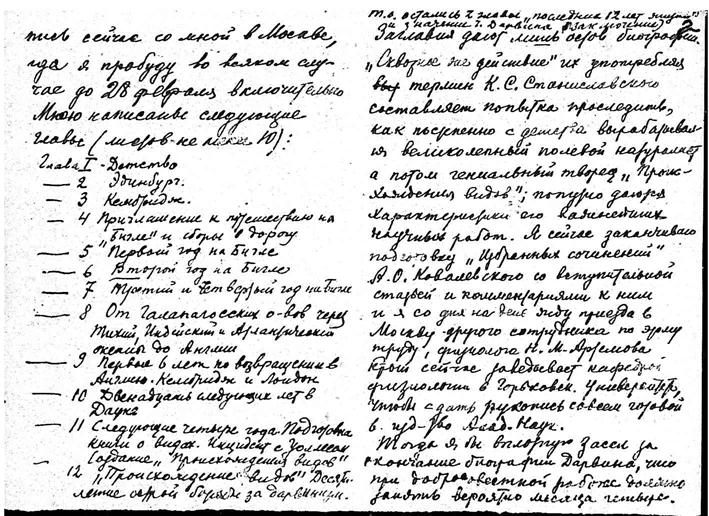 пись сейчас со мной в Москве,
где я пробуду во всяком слу-
чае до 28 февраля включительно
Мною написаны следующие
главы (листов не менее 10):
Глава I - Детство
— 2 Эдинбург.
— 3 Кембридж.
— 4 Приглашение к путешествию на
„Бигле" и сборы в дорогу
— 5 Первый год на Бигле
— 6 Второй год на Бигле
— 7 Третий и четвертый год на Бигле
— 8 От Галапагосских о-вов через
Тихий, Индийский и Атлантический
океаны до Англии
— 9 Первые 6 лет по возвращении в
Англию. Кембридж и Лондон
— 10 Двенадцать следующих лет в
Дауне
— 11 Следующие четыре года. Подготовка
книги о видах. Инцидент с Уоллесом
Создание „Происхождения видов"
12 „Происхождение видов" Десяти-
летие борьбы за дарвинизм.
т.о. остались 2 главы „последние 12 лет жизни"
и значение Ч. Дарвина (заключение)
2
Заглавия дают лишь остов биографии.
„Сквозное же действие" их употребляя
термин К.С. Станиславского
составляет попытка проследить,
как постепенно с детства вырабатывал-
ся великолепный полевой натуралист
а потом гениальный творец „Проис-
хождения видов"; попутно даются
характеристики его важнейших
научных работ. Я сейчас заканчиваю
подготовку „Избранных сочинений"
А.О. Ковалевского со вступительной
статьей и комментариями к ним
и я со дня на день жду приезда в
Москву другого сотрудника по этому
труду, физиолога Н.М. Артемова
к-рый сейчас заведывает кафедрой
физиологии в Горьковск. Университете,
чтобы сдать рукопись совсем готовой
в изд-во Акад. Наук.
Тогда я бы вплотную засел за
окончание биографии Дарвина, что
при добросовестной работе должно
занять вероятно месяца четыре.